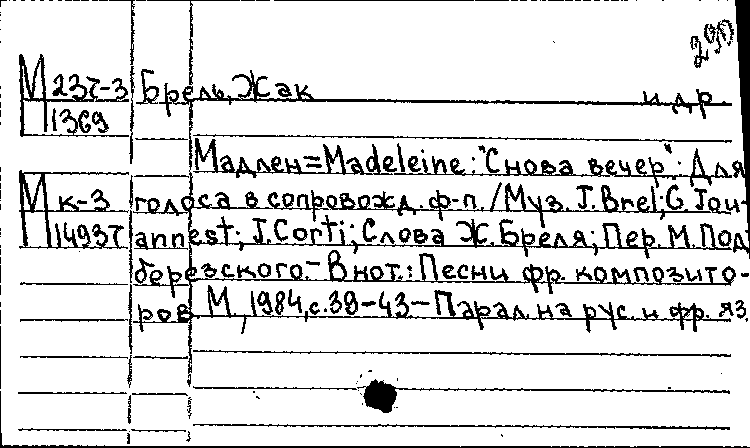 290
М 237-3 Брель, Жак и др.
1369
Мадлен=Madeleine: "Снова вечер": Для
М к-3 голоса в сопровожд. ф-п. / Муз. J. Brel; G. Jou-
14937 annest; J. Corti; Слова Ж. Бреля; Пер. М. Под
березского. - В нот.: Песни фр. композито-
ров. М., 1984, с. 39-43 - Парал. на рус. и фр. яз.